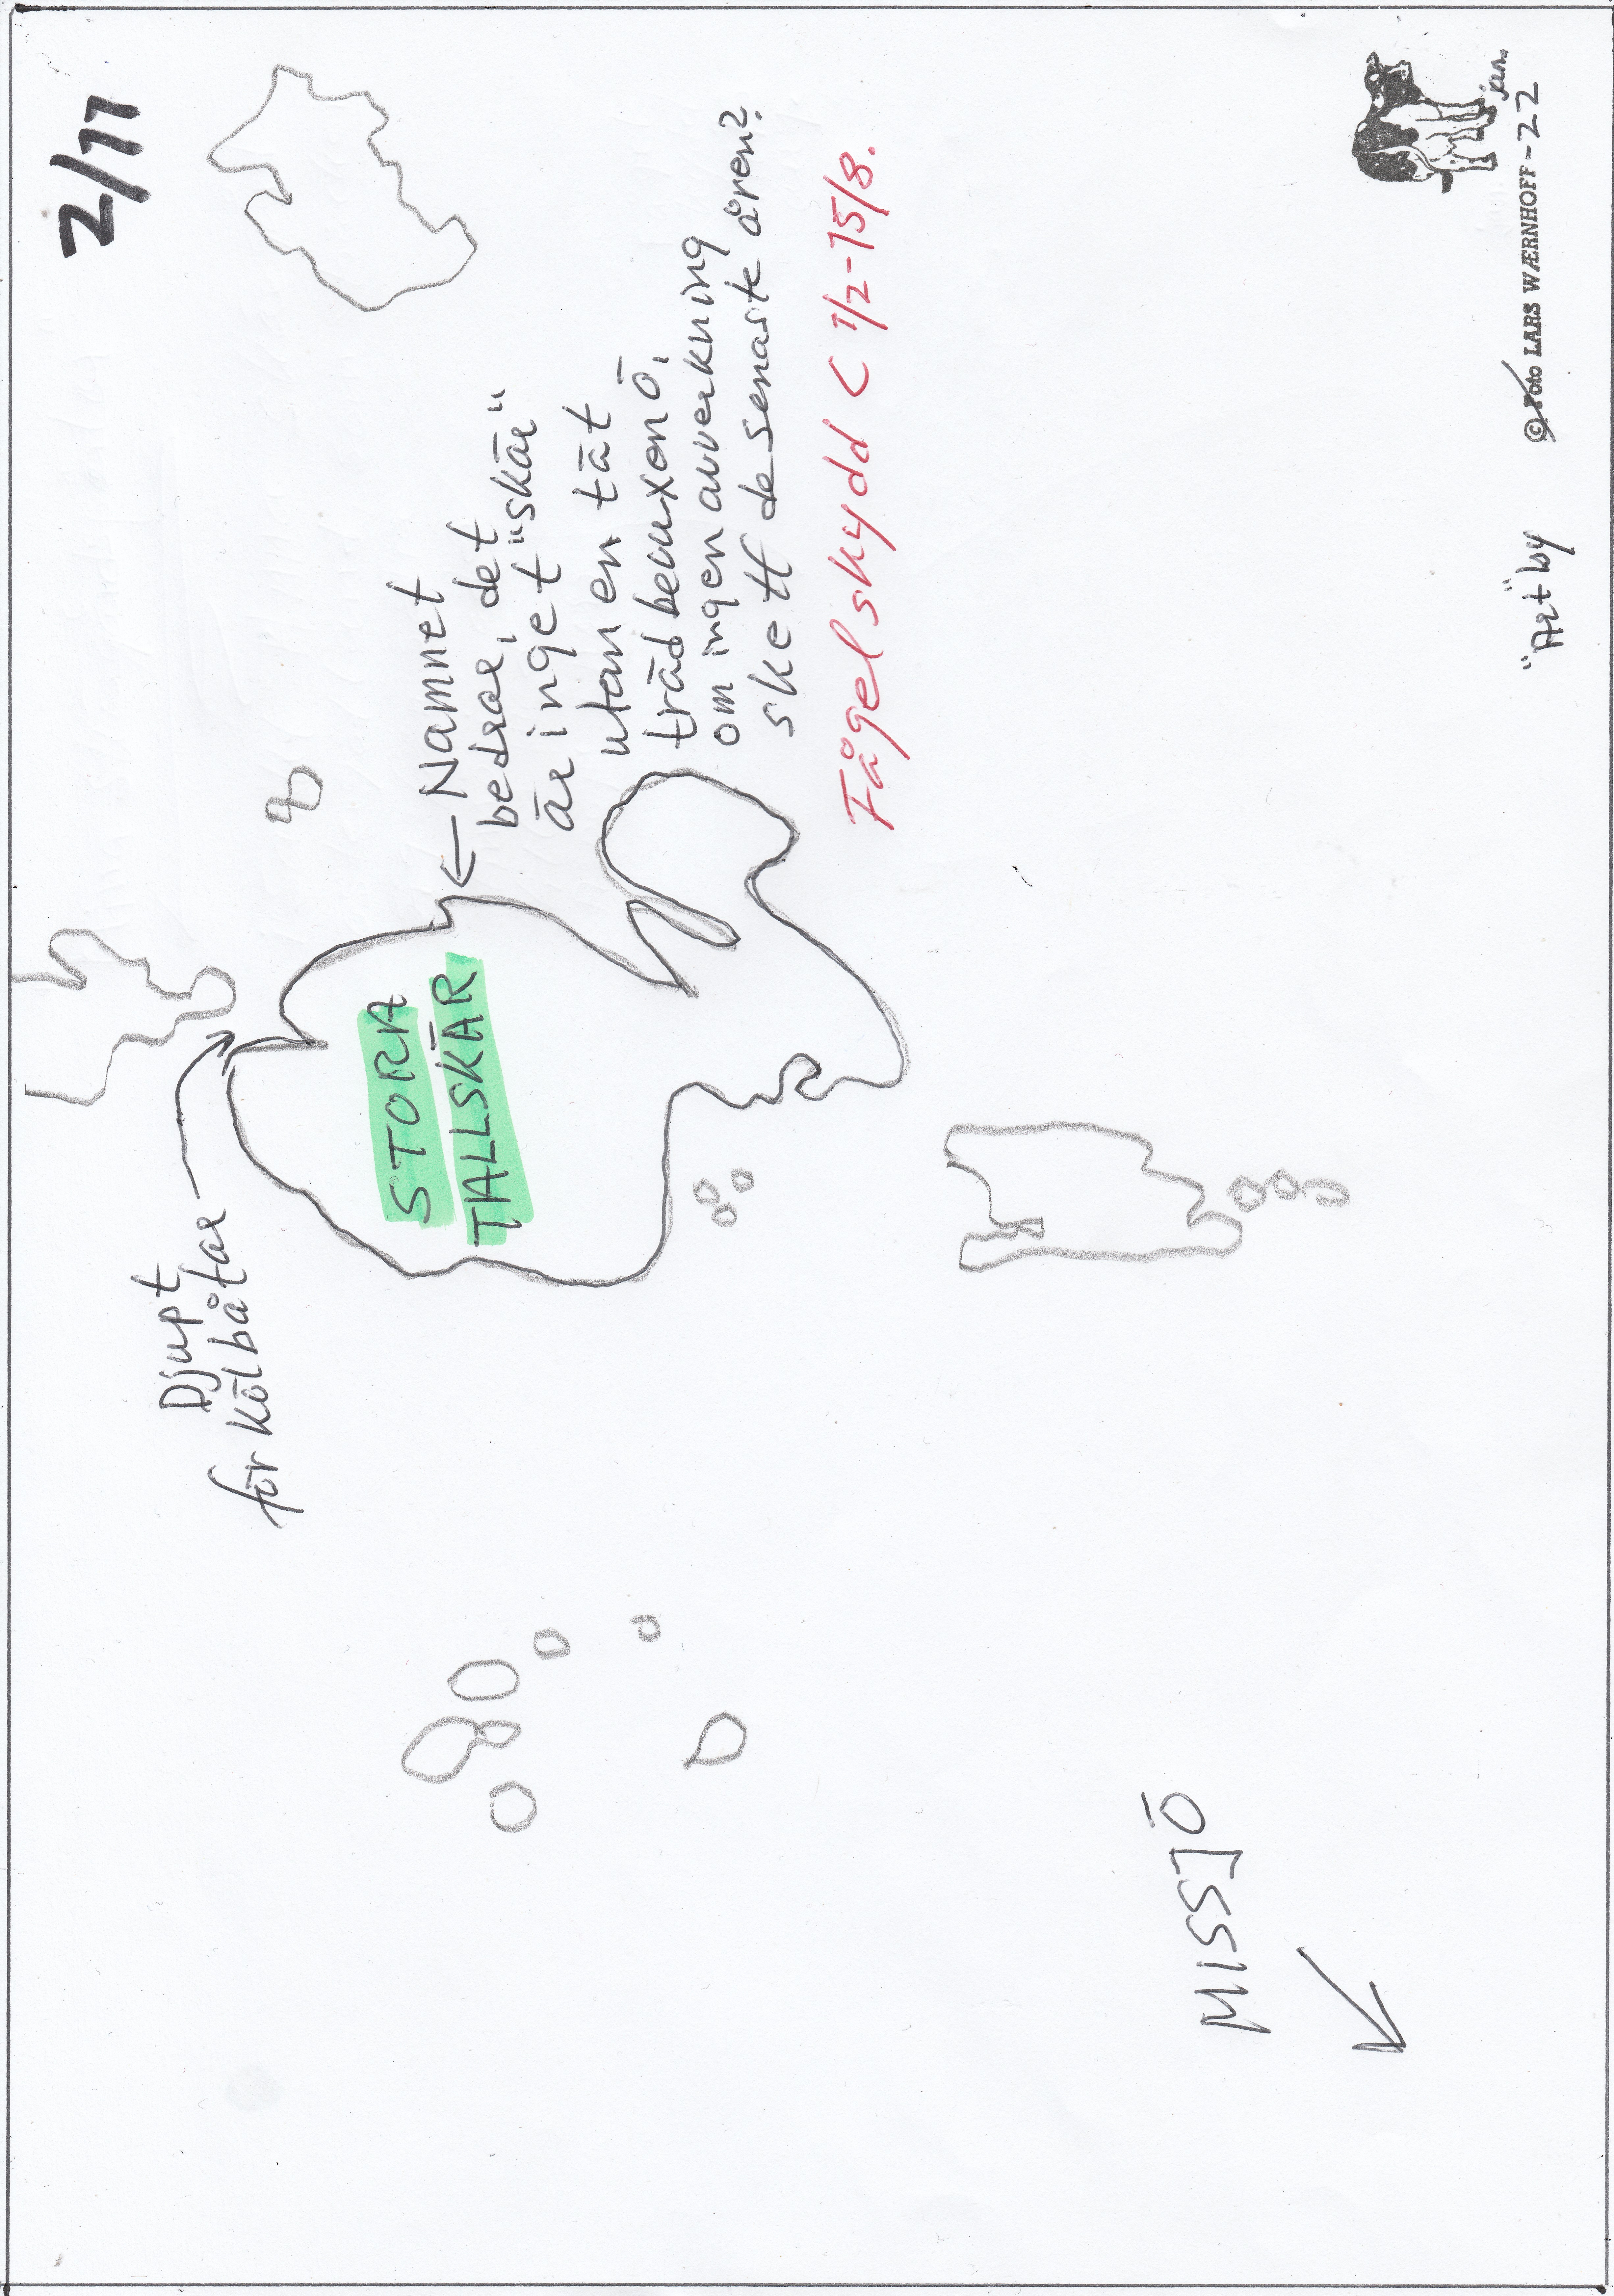 2/11
Djupt
för kölbåtar
STORA
TALLSKÄR
← Namnet
bedrar, det
är inget "skär"
utan en tät
trädbeuxen ö,
om ingen avverkning
skett de senaste åren?
Fågelskydd < 1/2-15/8.
MISSJÖ
"Art" by
© Foto LARS WÆRNHOFF -22
jun.